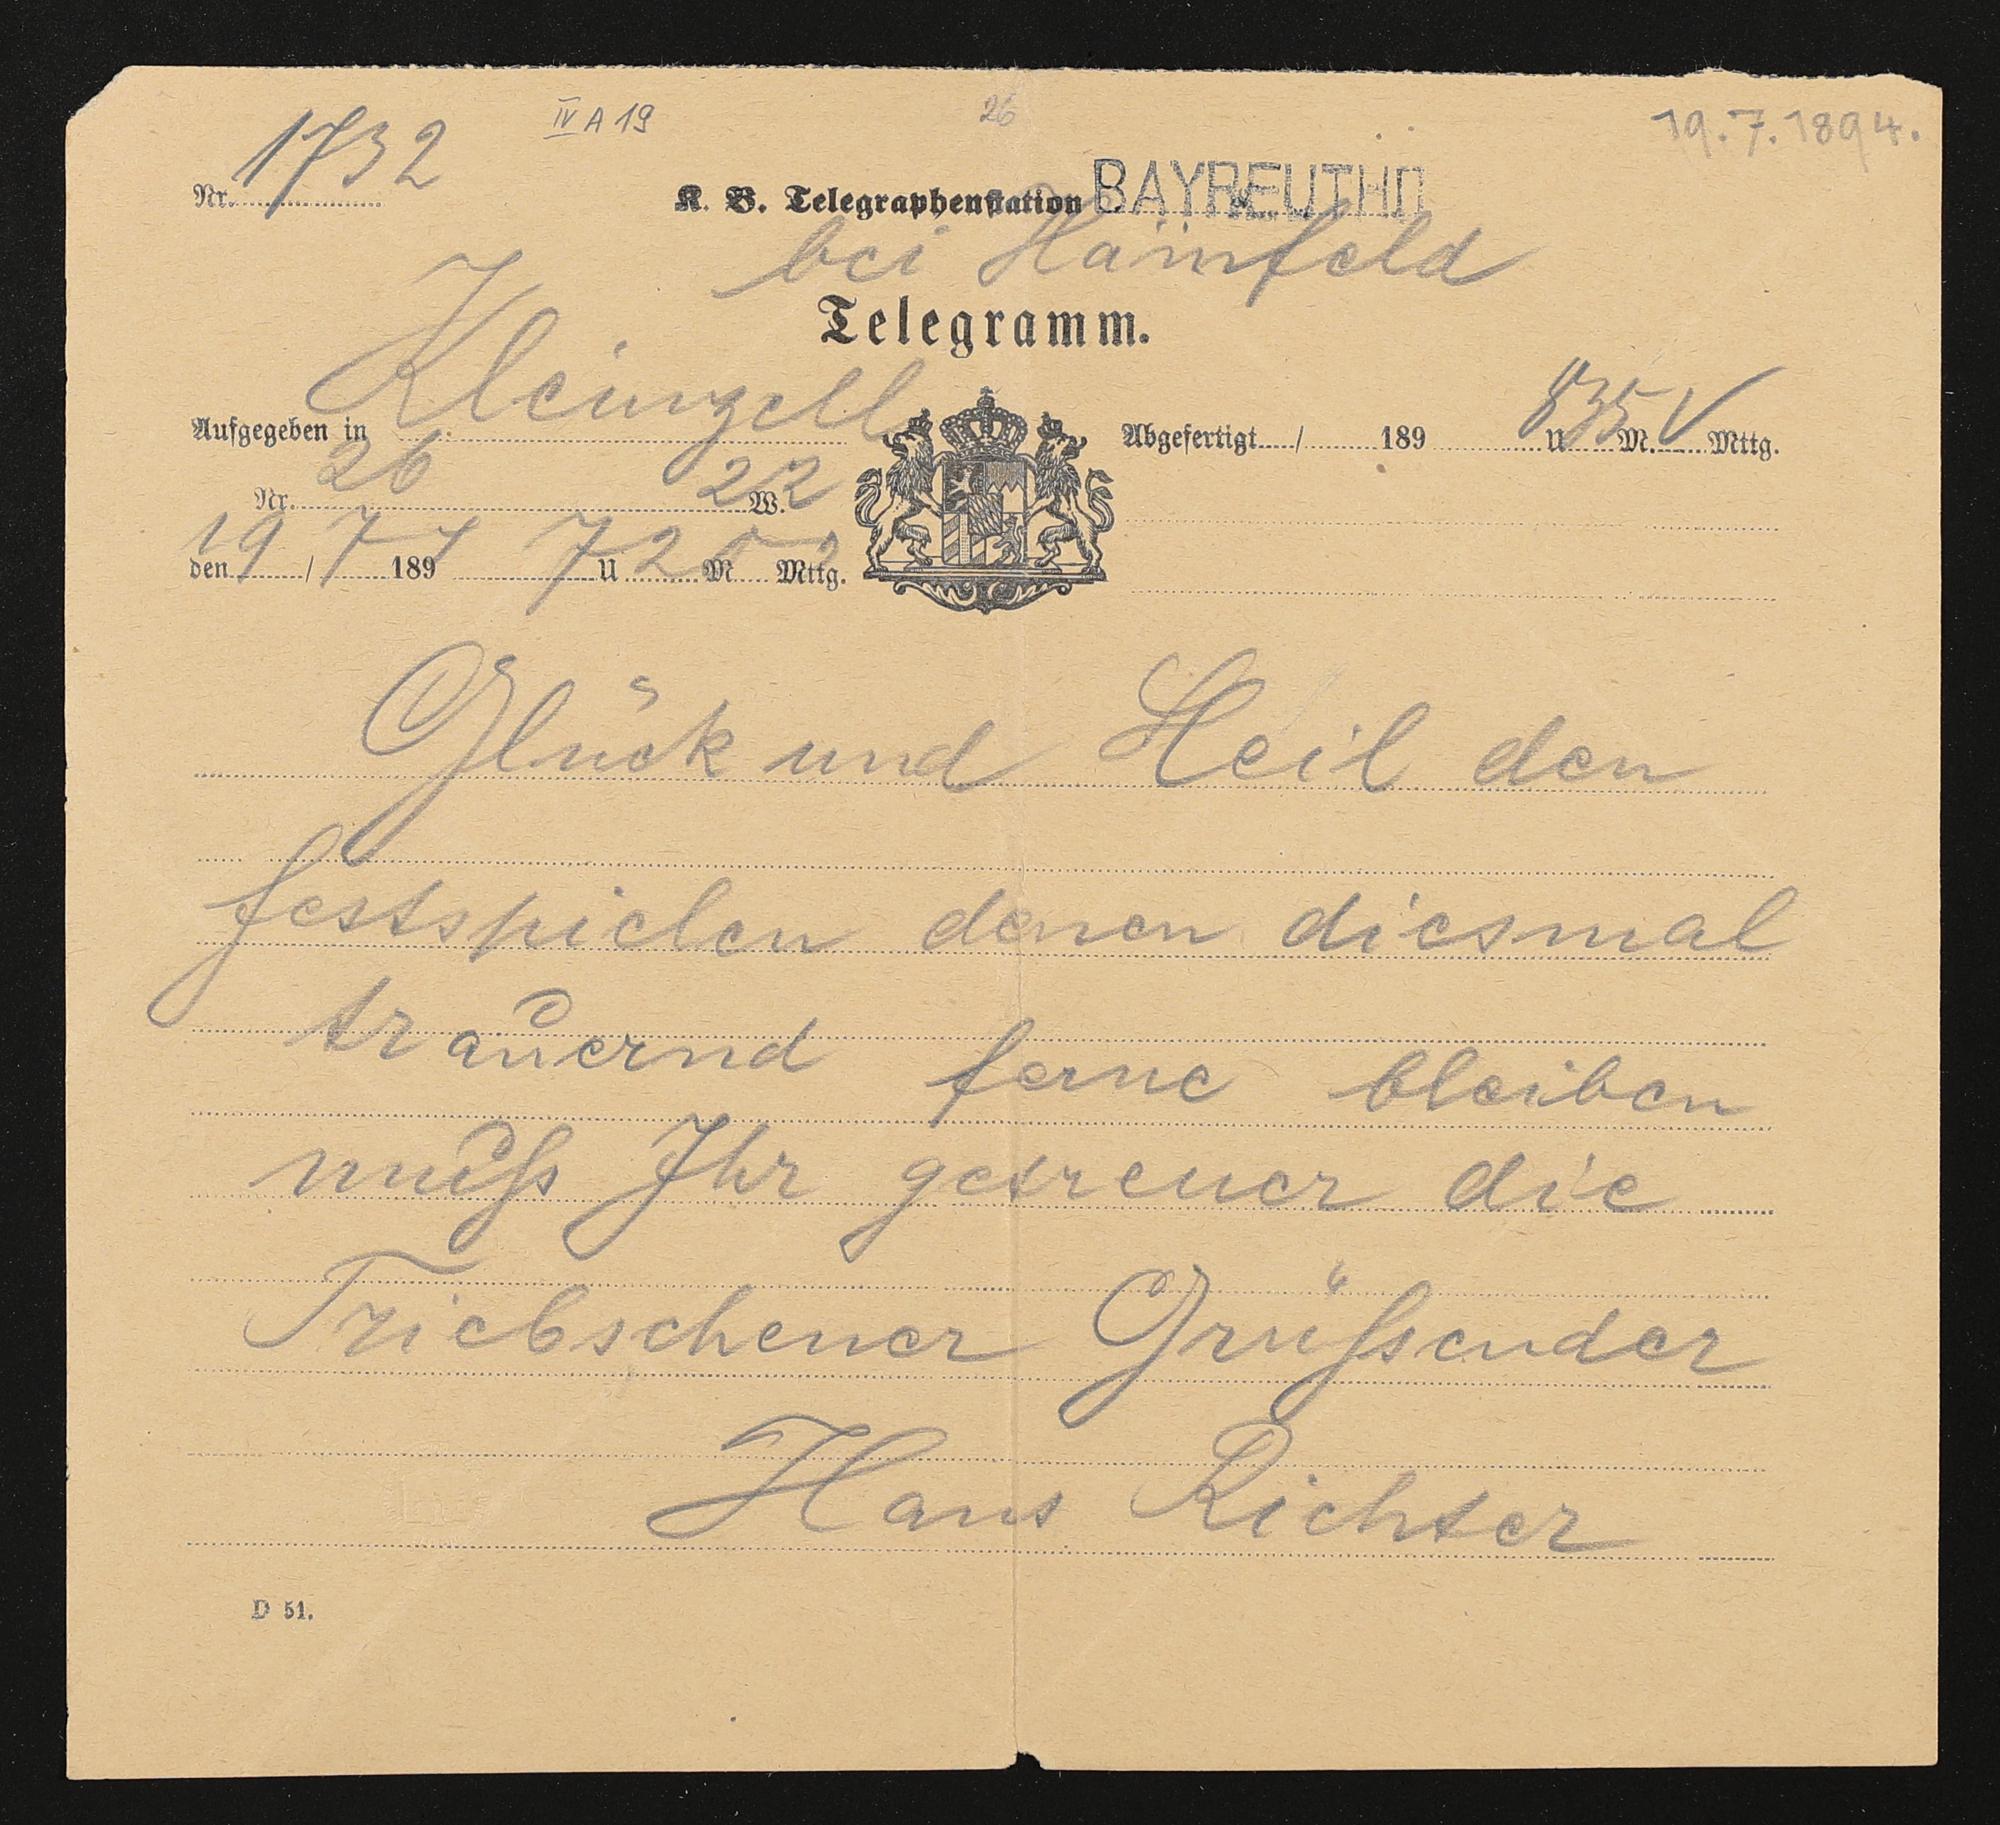 IV A 19
26
19.7.1894.
Nr. 1732
K. B. Telegraphenstation BAYREUTH
bei Hainfeld
Telegramm.
Aufgegeben in Kleinzell
Abgefertigt / 189 835 U M. V Mttg.
Nr. 26 22 W.
den 19 / 7 1894 7 U 20 M Mttg.
Glück und Heil den
festspielen denen diesmal
trauernd ferne bleiben
muß Ihr getreuer die
Triebschener Grüßender
Hans Richter
D 51.